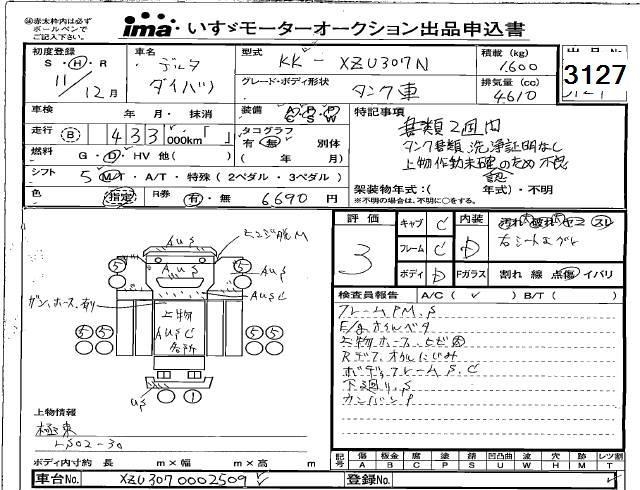 ㊟赤太枠内は必ず
ボールペンで
ご記入下さい。
ima いすゞモーターオークション出品申込書
初度登録
S・H・R
11/12月
車名
デルタ
ダイハツ
型式
KK－XZU307N
積載 (kg)
1,600
出品No.
3127
グレード・ボディ形状
タンク車
排気量 (cc)
4610
車検
年 月・抹消
装備
A P P
C S W
特記事項
書類2週間
タンク書類、洗浄証明なし
上物作動未確認のため不良
走行
433
000km「 」
タコグラフ
有・無 別体
( 年 月)
燃料
G・D・HV 他( )
シフト
5 MT・A/T・特殊 (2ペダル・3ペダル)
架装物年式:( 年式)・不明
※不明の場合は、不明に○をする。
色
指定
R券
有・無
6690円
評価
3
キャブ C
フレーム C
ボディ D
内装 D
Fガラス
汚れ 破れ ヤニ スレ
右シートエグレ
割れ 線 点傷 イバリ
検査員報告 A/C( ✓ ) B/T( )
フレームPM、S
E/gオイルベタ
上物ホース、ヒビ大
Rデフオイルにじみ
ボディフレームS、C
下廻り、S
カンバンP
AUS
AUS
AUS
AUSC
ヒンジ脱M
ガン、ホース、有り
上物
AUSC
各所
US
5
5
5
5
1
上物情報
極東
LS02-30
ボディ内寸約 長 m×幅 m×高 m
記号
傷 板金 腐 塗 錆 凹凸曲 要W 穴 跡 減 レツ割
A B C P S U W H X M T
車台No. XZU307 0002509
登録No.